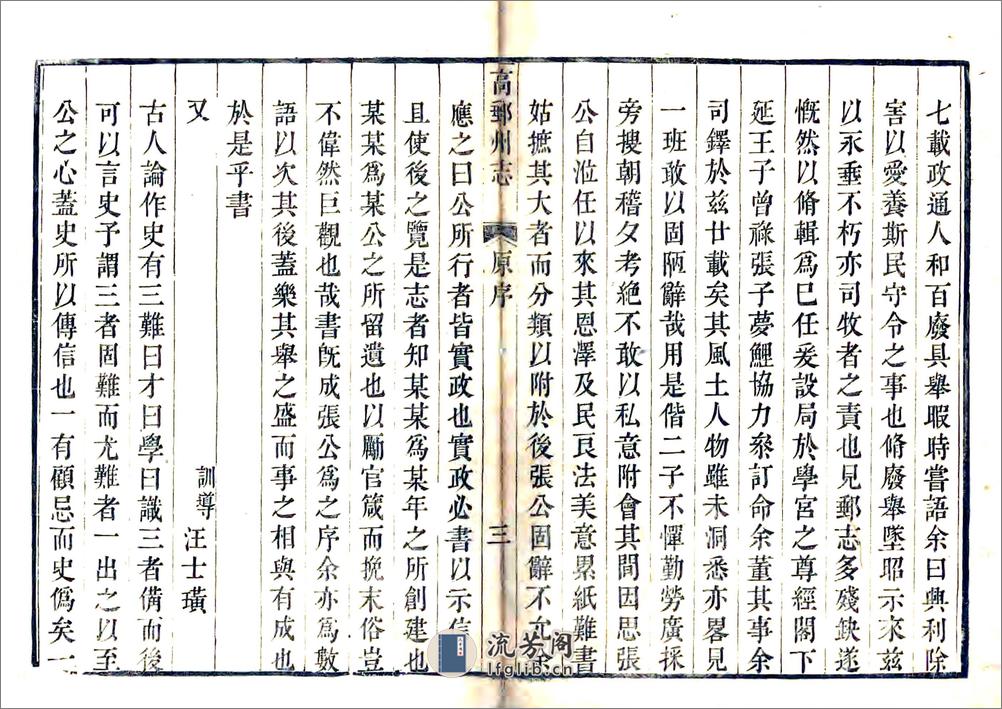 七載政通人和百廢具舉暇時嘗語余曰興利除
害以愛養斯民守令之事也脩廢舉墜昭示來茲
以永垂不朽亦司牧者之責也見郵志多殘缺遂
慨然以脩輯爲巳任爰設局於學宮之尊經閣下
延王子曾祿張子夢鯉協力叅訂命余董其事余
司鐸於兹廿載矣其風土人物雖未洞悉亦畧見
一班敢以固陋辭哉用是偕二子不憚勤勞廣採
旁搜朝稽夕考絕不敢以私意附會其間因思張
公自涖任以來其恩澤及民良法美意累紙難書
姑摭其大者而分類以附於後張公固辭不允余
高郵州志 原序 三
應之曰公所行者皆實政也實政必書以示信
且使後之覽是志者知某某爲某年之所創建也
某某爲某公之所留遺也以勵官箴而挽末俗豈
不偉然巨觀也哉書旣成張公爲之序余亦爲數
語以次其後蓋樂其舉之盛而事之相與有成也
於是乎書
又 訓導 汪士璜
古人論作史有三難曰才曰學曰識三者備而後
可以言史予謂三者固難而尤難者一出之以至
公之心蓋史所以傳信也一有顧忌而史僞矣一
流芳閣
lfglib.cn